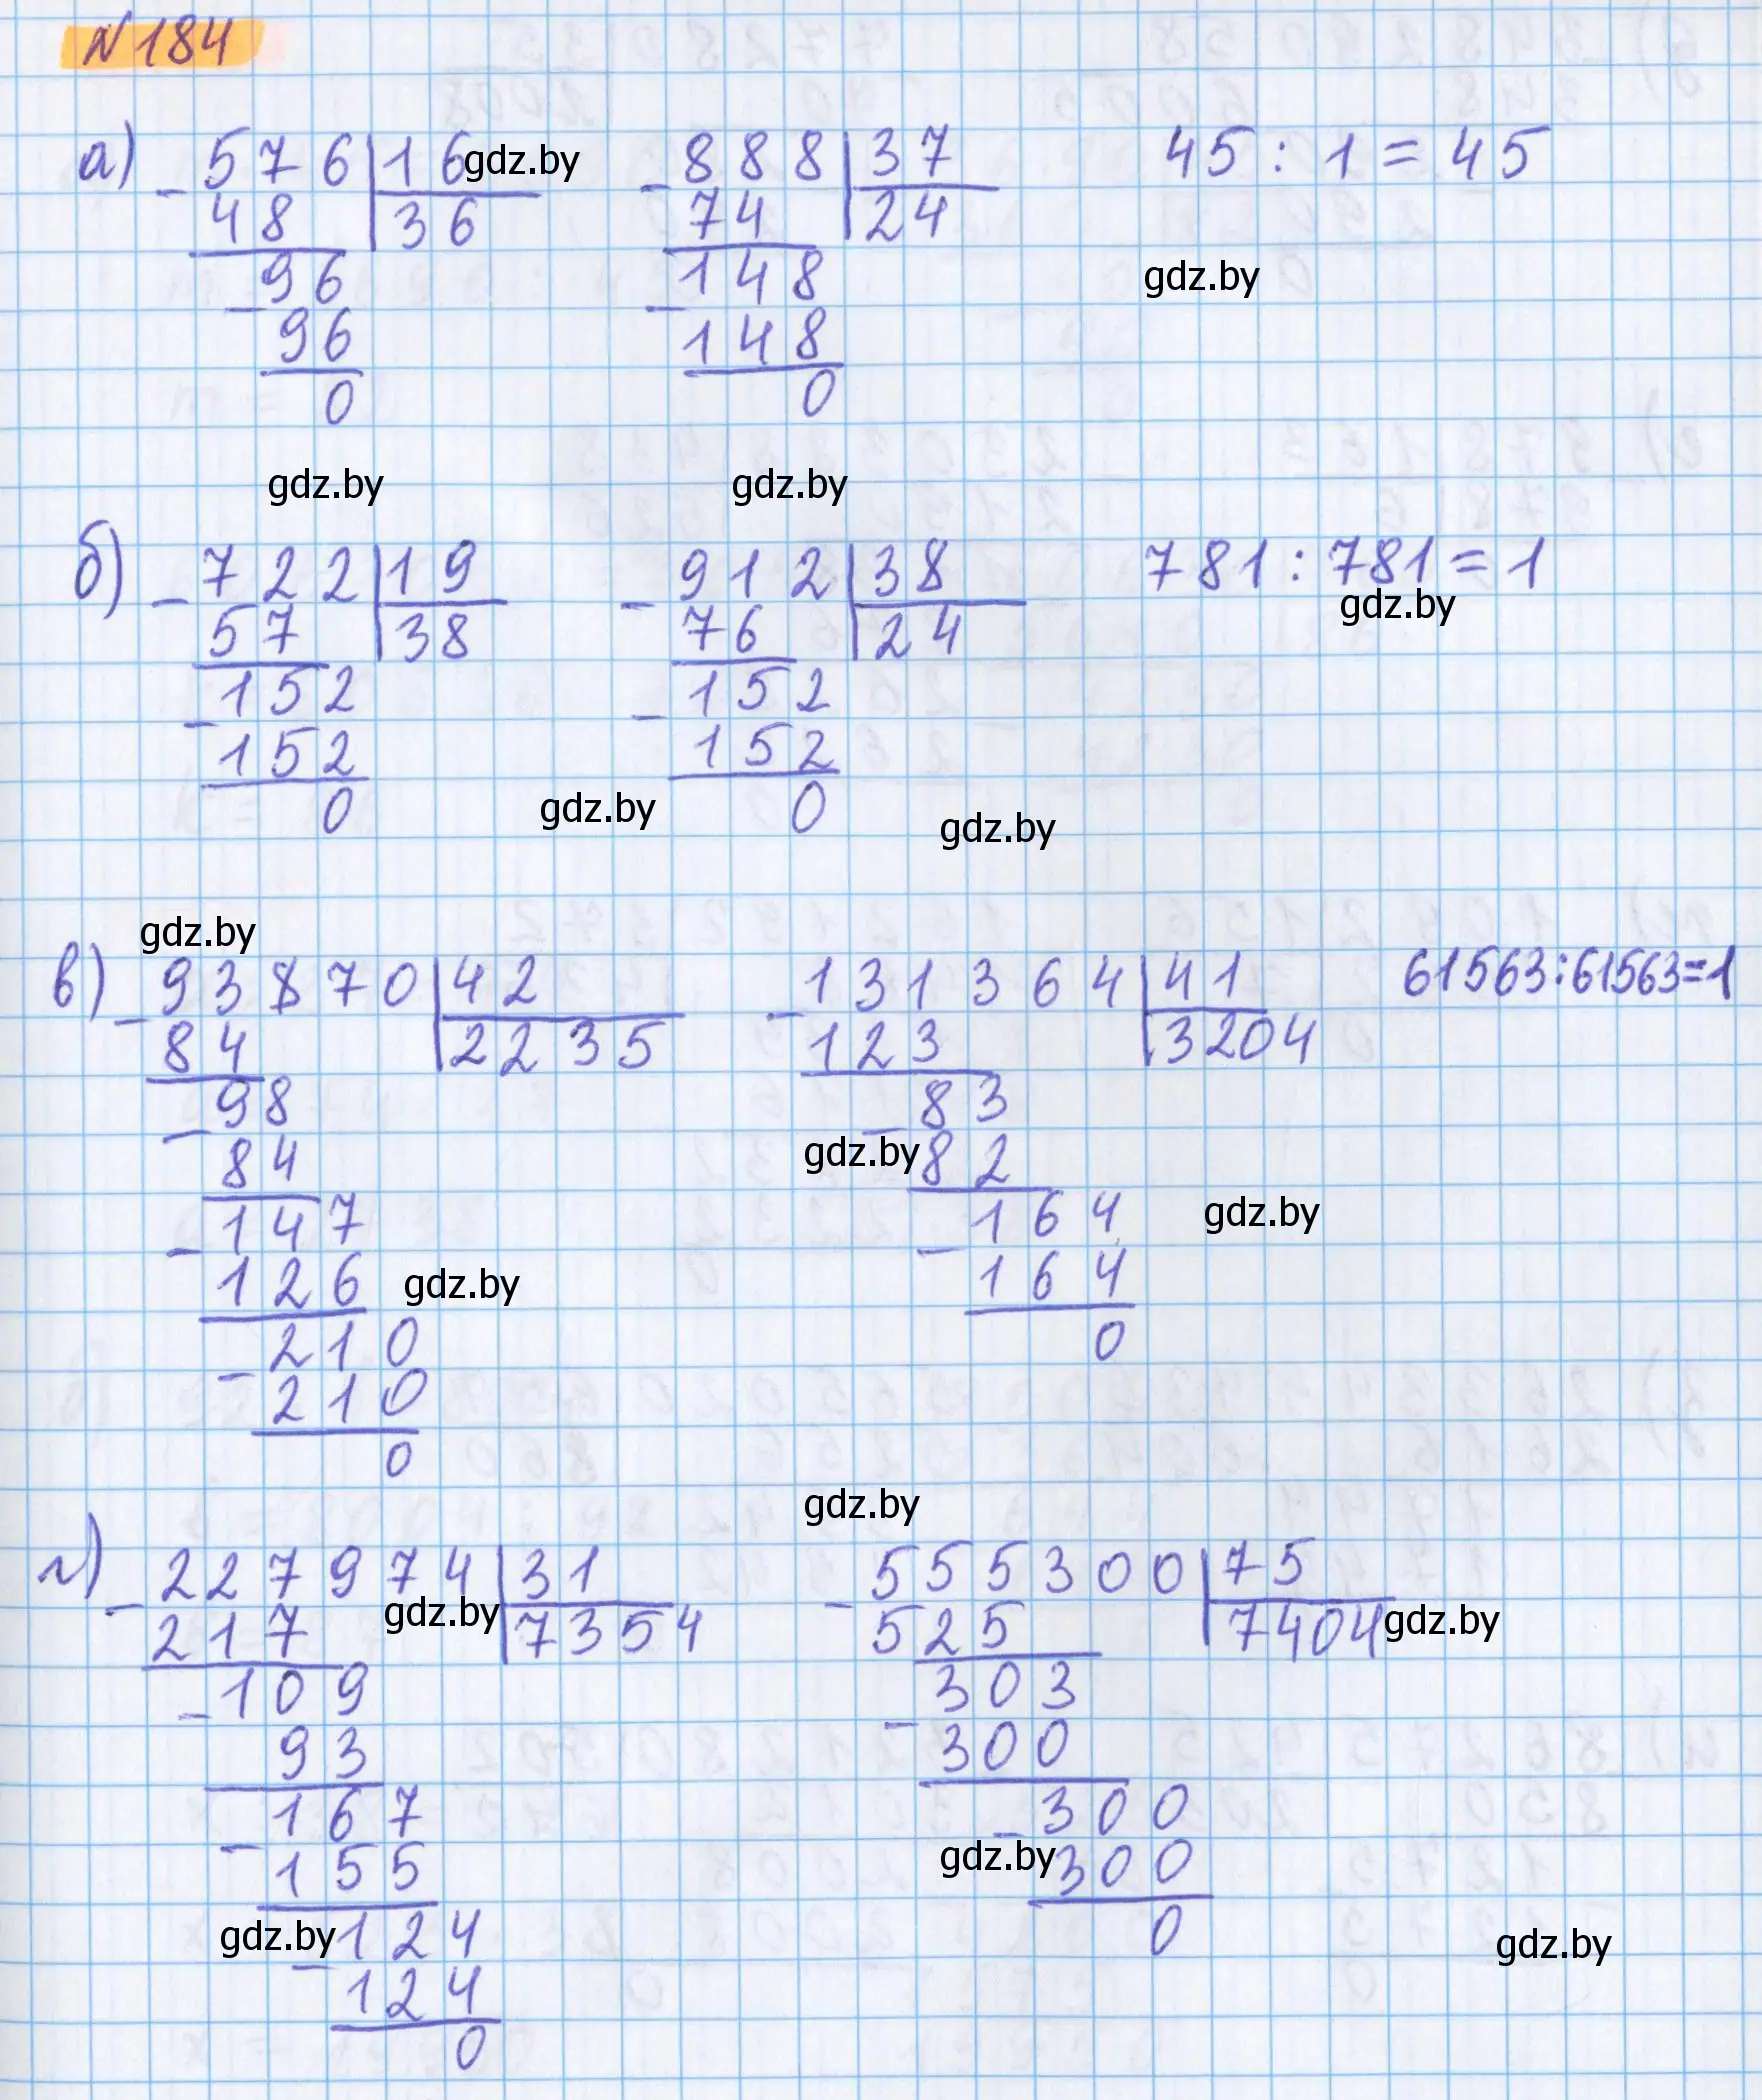 N184
а) 576 | 16 888 | 37 45 : 1 = 45
gdz.by
- 48 | 36 - 74 | 24
gdz.by
96 148
- 96 - 148
0 0
gdz.by gdz.by
б) 722 | 19 912 | 38 781 : 781 = 1
gdz.by
- 57 | 38 - 76 | 24
152 152
- 152 - 152
0 0
gdz.by gdz.by
gdz.by
в) 93870 | 42 131364 | 41 61563:61563=1
- 84 | 2235 - 123 | 3204
98 83
- 84 gdz.by - 82
147 164 gdz.by
- 126 gdz.by - 164
210 0
- 210
0
gdz.by
г) 227974 | 31 555300 | 75
- 217 gdz.by | 7354 - 525 | 7404 gdz.by
109 303
- 93 - 300
167 300
- 155 gdz.by - 300
gdz.by 124 0 gdz.by
- 124
0